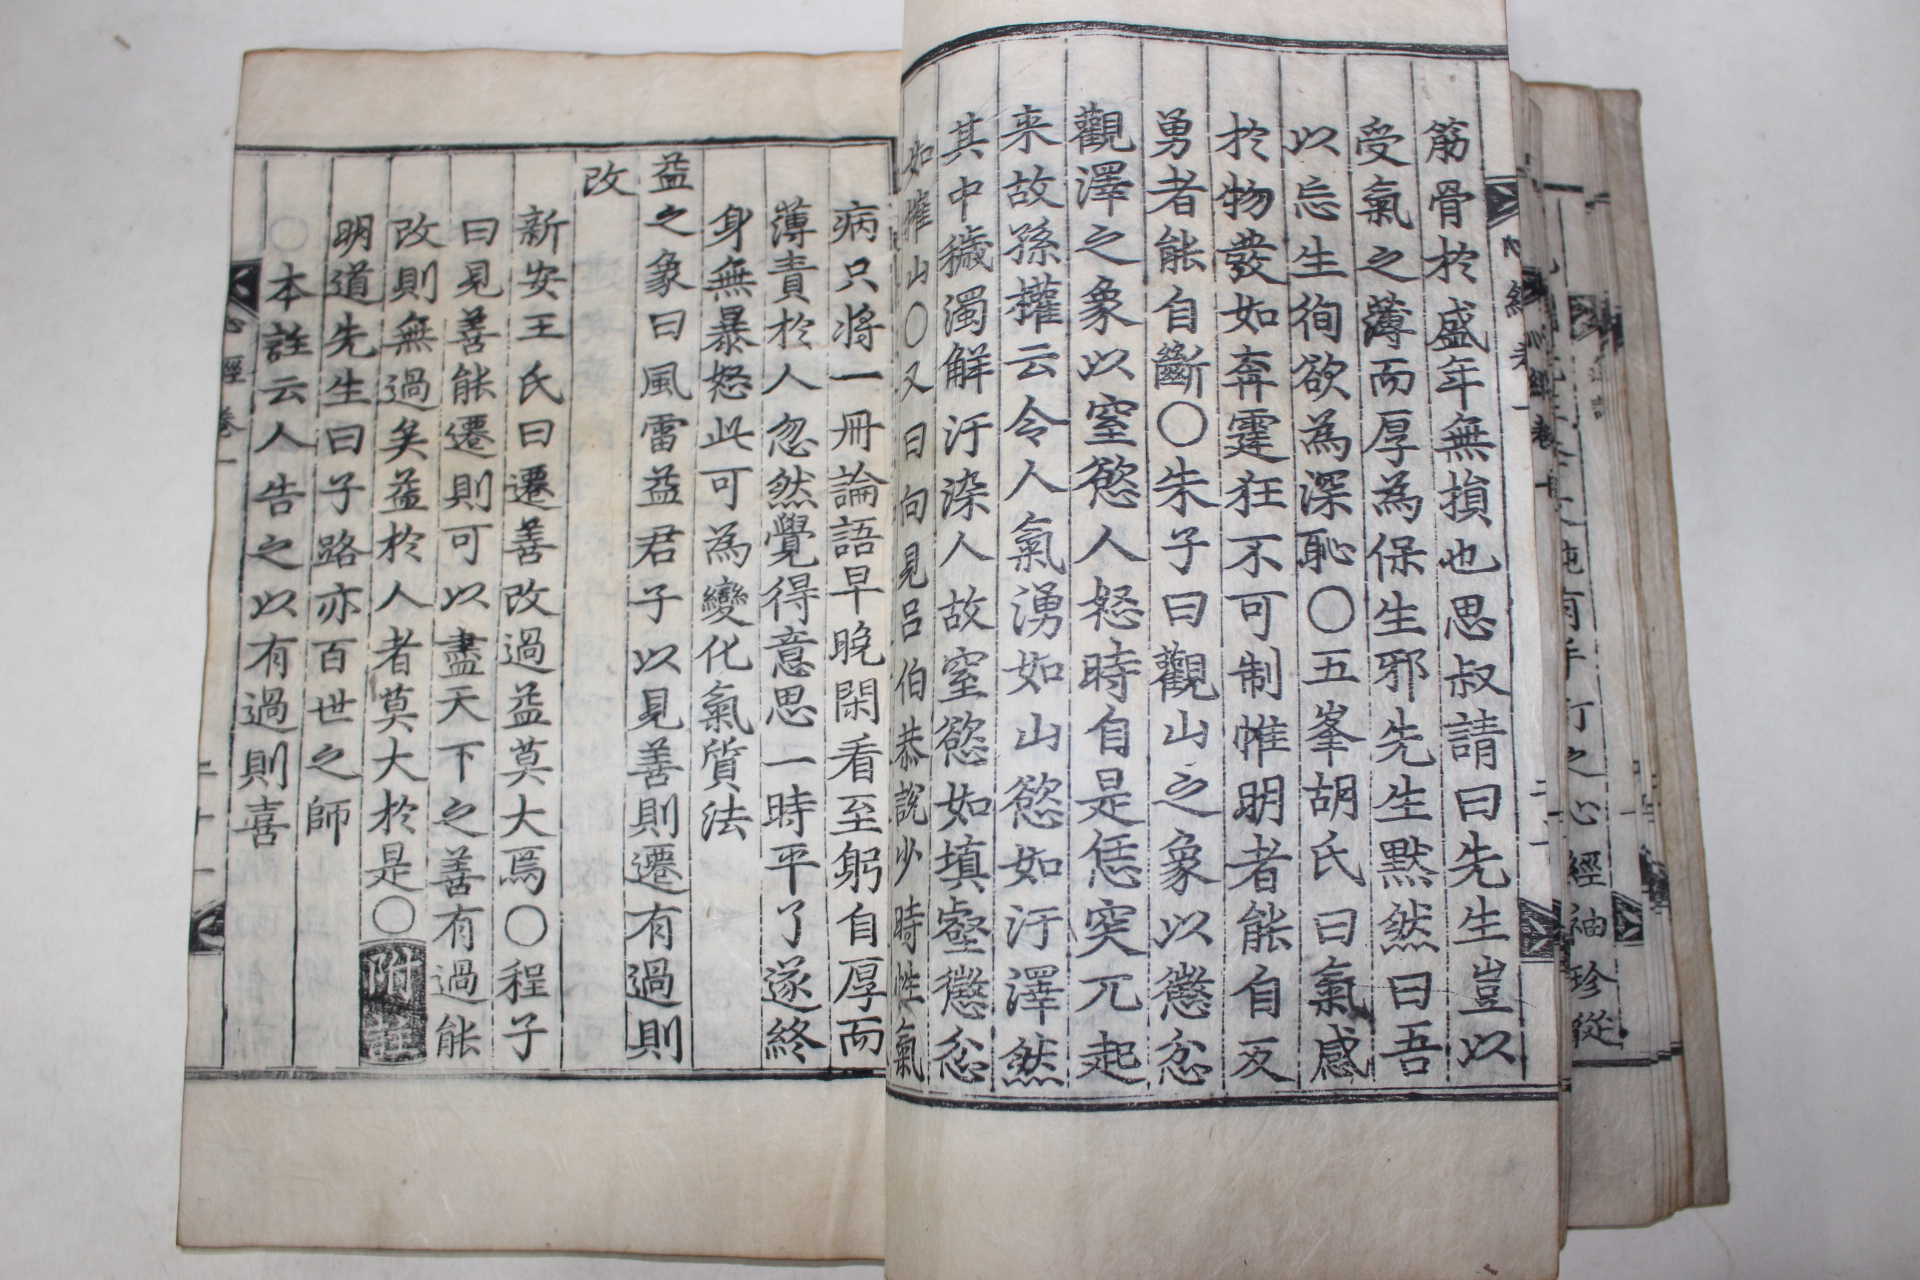 筋骨於盛年無損也思叔請曰先生豈以
受氣之薄而厚為保生邪先生默然曰吾
以忘生徇欲為深恥〇五峯胡氏曰氣感
於物發如奔霆狂不可制惟明者能自反
勇者能自斷〇朱子曰觀山之象以懲忿
觀澤之象以窒慾人怒時自是恁突兀起
来故孫權云令人氣湧如山慾如汙澤然
其中穢濁解汙染人故窒慾如填壑懲忿
如摧山〇又曰向見呂伯恭說少時性氣
病只将一冊論語早晚閑看至躬自厚而
薄責於人忽然覺得意思一時平了遂終
身無暴怒此可為變化氣質法
益之象曰風雷益君子以見善則遷有過則
改
新安王氏曰遷善改過益莫大焉〇程子
曰見善能遷則可以盡天下之善有過能
改則無過矣益於人者莫大於是〇附註
明道先生曰子路亦百世之師
〇本註云人告之以有過則喜
心經 卷一
二十一